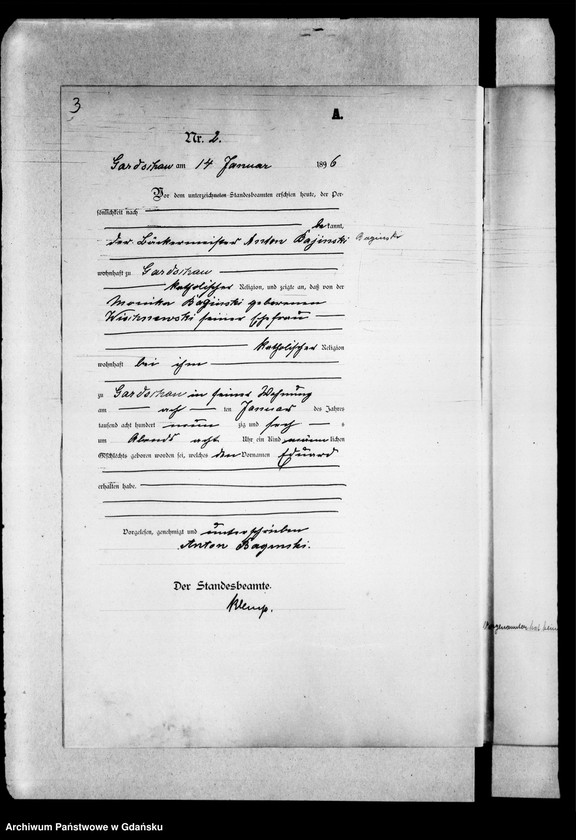 3
A.
Nr. 2.
Gardschau am 14 Januar 1896
Vor dem unterzeichneten Standesbeamten erschien heute, der Per-
sönlichkeit nach
bekannt,
der Bäckermeister Anton Bajinski Baginski
wohnhaft zu Gardschau
katholischer Religion, und zeigte an, daß von der
Monika Baginski geborenen
Wischnewski seiner Ehefrau
katholischer Religion
wohnhaft bei ihm
zu Gardschau in seiner Wohnung
am ach ten Januar des Jahres
tausend acht hundert neun zig und sech s
um Abends acht Uhr ein Kind männlichen
Geschlechts geboren worden sei, welches den Vornamen
Eduard
erhalten habe.
Vorgelesen, genehmigt und unterschrieben
Anton Bagenski.
Der Standesbeamte.
Klemp.
Archiwum Państwowe w Gdańsku